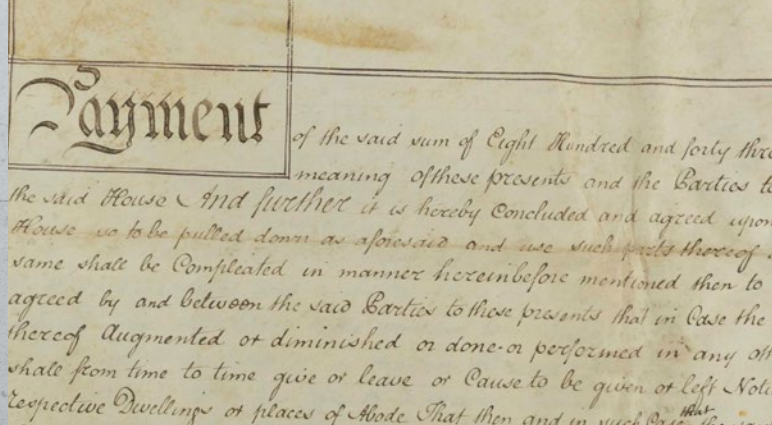 Payment of the said sum of Eight Hundred and forty three
meaning of these presents and the Parties to
the said House And further it is hereby Concluded and agreed upon
House so to be pulled down as aforesaid and use such parts thereof
same shall be Compleated in manner hereinbefore mentioned then to
agreed by and between the said Parties to these presents that in Case the
thereof Augmented or diminished or done or performed in any
shall from time to time give or leave or Cause to be given or left
respective Dwellings or places of Abode That then and in such Case that the